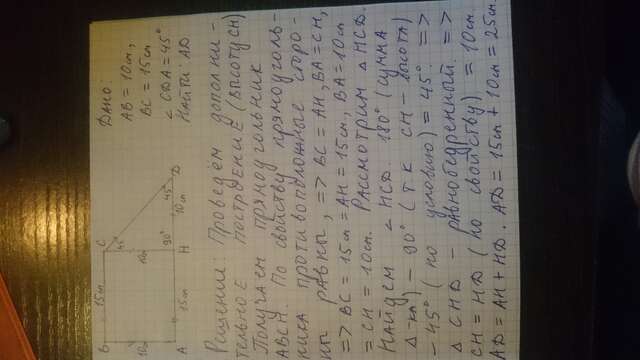 B 15см C
45°
10 10
90° 45°
A 15см H 10см D
Дано:
AB = 10см,
BC = 15см
∠CDA = 45°
Найти: AD
Решение: Проведём дополни-
тельное построение (высоту CH)
Получаем прямоугольник
ABCH. По свойству прямоуголь-
ника противоположные сторо-
ны равны, => BC = AH, BA = CH,
=> BC = 15см = AH = 15см, BA = 10см
= CH = 10см. Рассмотрим △HCD.
Найдем ∠HCD 180° (сумма
△-ка) – 90° (т к CH – высота)
– 45° (по условию) = 45° =>
△CHD – равнобедренный =>
CH = HD (по свойству) = 10см.
AD = AH + HD. AD = 15см + 10см = 25см.